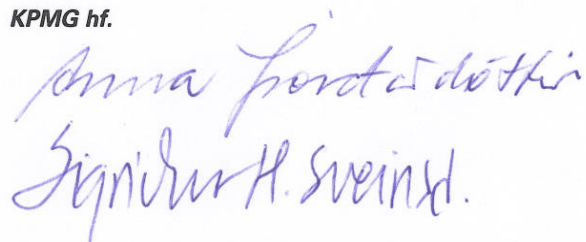 KPMG hf.
Anna Þórðardóttir
Sigríður H. Sveinsd.